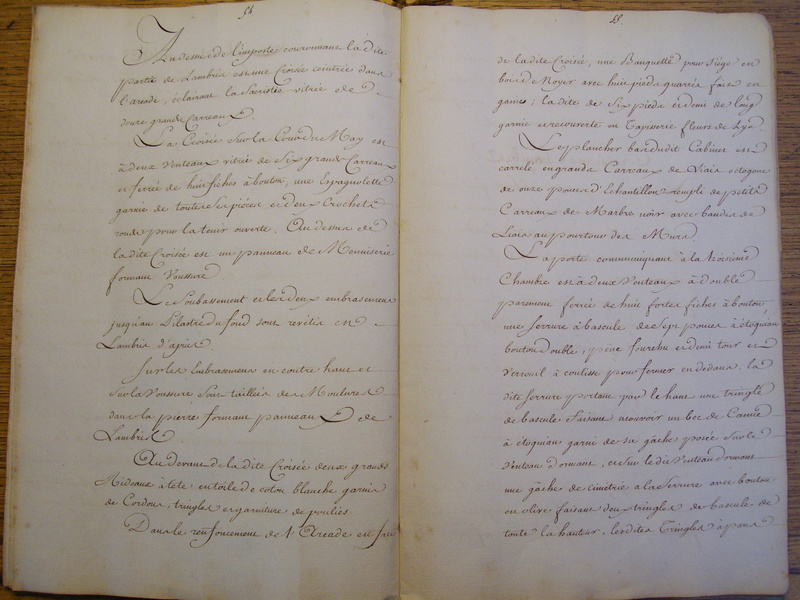 54
Au dessus de l'imposte couronnant la dite
partie de Lambris est une Croisée ceintrée dans
l'arcade, éclairant la Sacristie vitrée de
douze grands Carreaux.
La Croisée sur la Cour du May est
à deux Venteaux vitrée de Six grands Carreaux
et ferrée de huit fiches à bouton, une Espagnolette
garnie de toutes ses pièces et deux Crochets
ronds pour la tenir ouverte. Au dessus de
la dite Croisée est un panneau de Menuiserie
formant Voussure
Le Soubassement et les deux embrasemens
jusqu'au Pilastre du fond sont revêtis en
Lambris d'apui.
Sur les Embrasemens en contre haut et
sur la Voussure sont taillées des Moulures
dans la pierre formant panneaux de
Lambris.
Au devant de la dite Croisée deux grands
Rideaux à tête en toile de coton blanche garnis
de Cordons, tringles et garniture de poulies
Dans le renfoncement de l'Arcade est sur
55.
de la dite Croisée, une Banquette pour siège en
bois de Noyer avec huit pieds quarrés fait en
gaines; la dite de six pieds et demi de long
garnie et recouverte en Tapisserie fleurs de Lys.
Le plancher bas dudit Cabinet est
carrelé en grands Carreaux de Liais octogone
de onze pouces d'Echantillon rempli de petits
Carreaux de Marbre noir avec bandes de
Liais au pourtour des Murs.
La porte communiquant à la troisième
Chambre est à deux Venteaux à double
parement ferrée de huit fortes fiches à bouton,
une serrure à bascule de sept pouces à étoquiau
bouton double, pêne fourchu et demi tour et
Verrouil à coulisse pour fermer en dedans. la
dite serrure portant par le haut une tringle
de bascule faisant mouvoir un bec de Canne
à étoquiau garni de sa gâche posée sur le
Venteau dormant, et sur le dit Venteau dormant
une gâche de cimétrie à la serrure avec bouton
en olive faisant deux tringles de bascule de
toute la hauteur. lesdites Tringles à pans